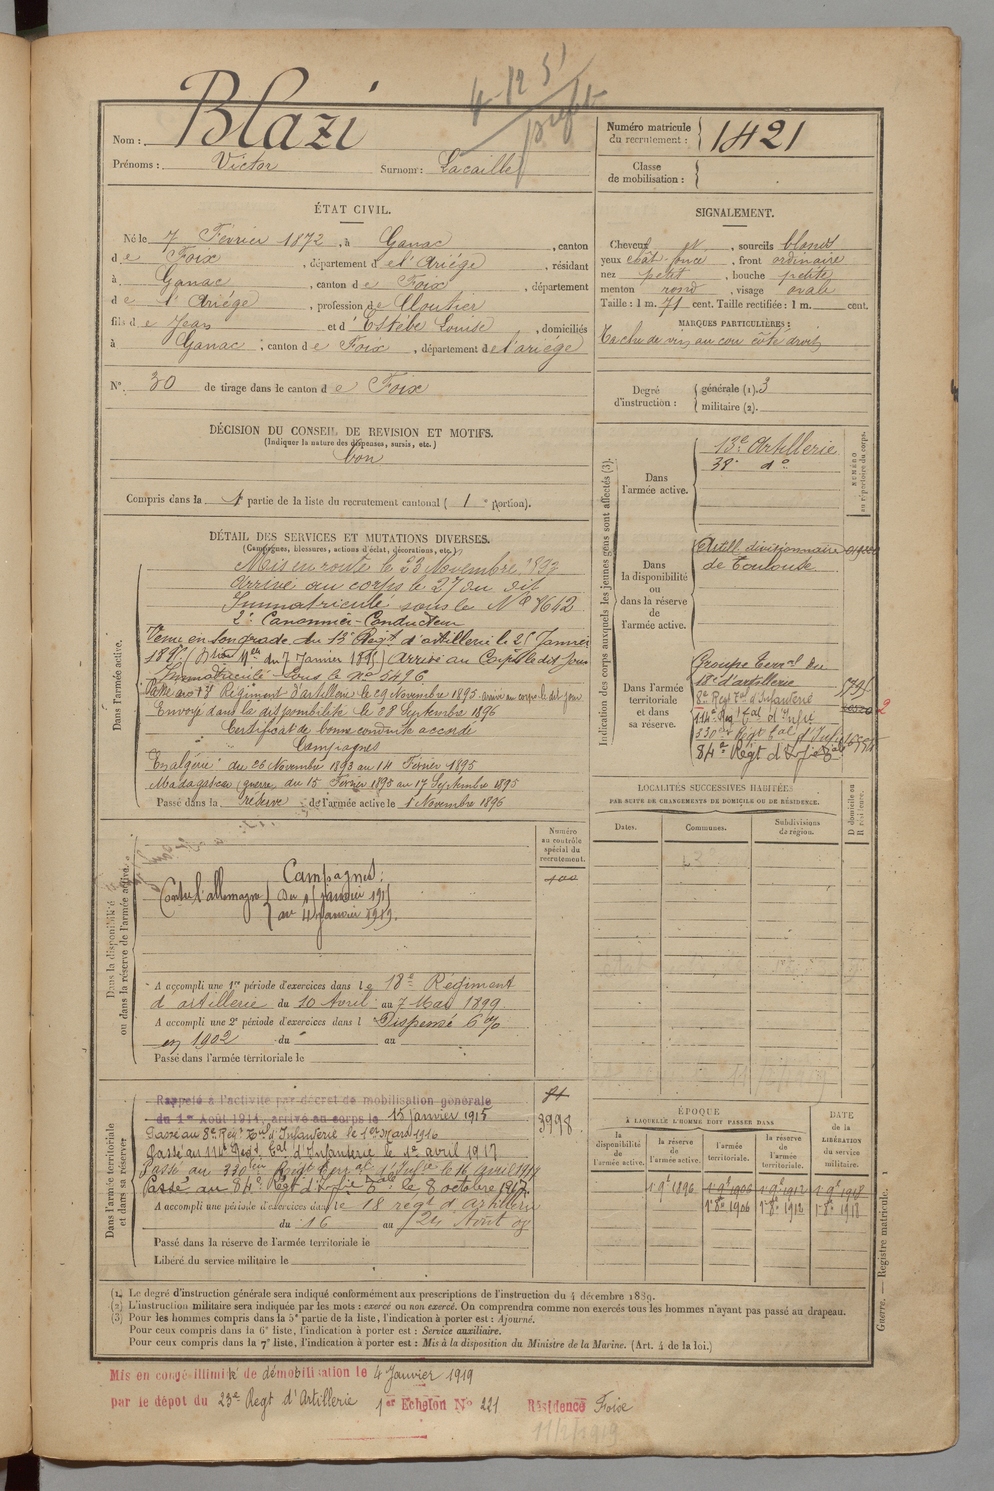 4-12 51
Nom : Blazi
Prénoms : Victor Surnom : Lacaille
Numéro matricule du recrutement : 1421
Classe de mobilisation :
ÉTAT CIVIL.
Né le 7 Février 1872, à Ganac, canton
de Foix, département de l'Ariége, résidant
à Ganac, canton de Foix, département
de l'Ariége, profession de Cloutier
fils de Jean et d'Estèbe Louise, domiciliés
à Ganac, canton de Foix, département de l'ariége
N° 30 de tirage dans le canton de Foix
SIGNALEMENT.
Cheveux et, sourcils blonds
yeux chât. foncé, front ordinaire
nez petit, bouche petite
menton rond, visage ovale
Taille : 1 m. 71 cent. Taille rectifiée : 1 m. cent.
MARQUES PARTICULIÈRES :
Tache de vin au cou côté droit
Degré d'instruction : générale (1). 3
militaire (2).
DÉCISION DU CONSEIL DE REVISION ET MOTIFS.
(Indiquer la nature des dispenses, sursis, etc.)
bon
Compris dans la 1 partie de la liste du recrutement cantonal ( 1 e portion).
DÉTAIL DES SERVICES ET MUTATIONS DIVERSES.
(Campagnes, blessures, actions d'éclat, décorations, etc.)
Dans l'armée active.
Mis en route le 23 Novembre 1893
Arrivé au corps le 27 du dit
Immatriculé sous le N° 1612
2e Canonnier-Conducteur
Venu en son grade du 13e Régt d'artillerie le 25 Janvier
1895 du 7 Janvier 1895) Arrivé au Corps le dit Jour
Immatriculé sous le No 5496
Passé au 13e Régiment d'artillerie le 29 Novembre 1895 arrivé au corps le dit jour
Envoyé dans la disponibilité le 28 Septembre 1896
Certificat de bonne conduite accordé
Campagnes
En algérie du 26 Novembre 1893 au 14 Février 1895
Madagascar (guerre) du 15 Février 1895 au 17 Septembre 1895
Passé dans la réserve de l'armée active le 1 Novembre 1896
Indication des corps auxquels les jeunes gens sont affectés (3).
NUMÉRO au répertoire du corps.
Dans l'armée active.
13e Artillerie
38e do
Dans la disponibilité ou dans la réserve de l'armée active.
Artill divisionnaire
de Toulouse
Dans l'armée territoriale et dans sa réserve.
Groupe Territal du
18e d'artillerie
8e Régt Tal d'Infanterie
114e Régt Tal d'Infie
330e Régt Tal d'Infie
84e Régt d'
2
LOCALITÉS SUCCESSIVES HABITÉES
PAR SUITE DE CHANGEMENTS DE DOMICILE OU DE RÉSIDENCE.
Dates. Communes. Subdivisions de région.
D domicile ou R résidence.
Dans la disponibilité ou dans la réserve de l'armée active.
Numéro au contrôle spécial du recrutement.
Campagnes:
Contre l'allemagne { du 15 Janvier 1915
au 4 Janvier 1919.
A accompli une 1re période d'exercices dans le 18e Régiment
d'artillerie du 10 Avril au 7 Mai 1899
A accompli une 2e période d'exercices dans l Dispensé 6 %
en 1902 du au
Passé dans l'armée territoriale le
Dans l'armée territoriale et dans sa réserve
Rappelé à l'activité par décret de mobilisation générale
du 1er Août 1914, arrivé au corps le 15 janvier 1915
3998
Passé au 8e Régt Tal d'Infanterie le 1er mars 1916
Passé au 114e Régt Tal d'Infanterie le 1e avril 1917
Passé au 330e Régt Terral d'Infie le 16 Avril 1917
Passé au 84e Régt d' le 8 octobre 1917.
A accompli une période d'exercices dans le 18 régt d'Artillerie
du 16 au 24 Août 09
Passé dans la réserve de l'armée territoriale le
Libéré du service militaire le
ÉPOQUE
À LAQUELLE L'HOMME DOIT PASSER DANS
la disponibilité de l'armée active. la réserve de l'armée active. l'armée territoriale. la réserve de l'armée territoriale.
DATE de la LIBÉRATION du service militaire.
1 9e 1896 1 9e 1906 1 9e 1912 1 9e 1918
1er 8e 1906 1er 8e 1912 1er 8e 1918
Guerre. — Registre matricule.
(1) Le degré d'instruction générale sera indiqué conformément aux prescriptions de l'instruction du 4 décembre 1889.
(2) L'instruction militaire sera indiquée par les mots : exercé ou non exercé. On comprendra comme non exercés tous les hommes n'ayant pas passé au drapeau.
(3) Pour les hommes compris dans la 5e partie de la liste, l'indication à porter est : Ajourné.
Pour ceux compris dans la 6e liste, l'indication à porter est : Service auxiliaire.
Pour ceux compris dans la 7e liste, l'indication à porter est : Mis à la disposition du Ministre de la Marine. (Art. 4 de la loi.)
Mis en congé illimité de démobilisation le 4 Janvier 1919
par le dépôt du 23e Regt d'Artillerie 1er Echelon N° 221 Résidence Foix
11/2/1919